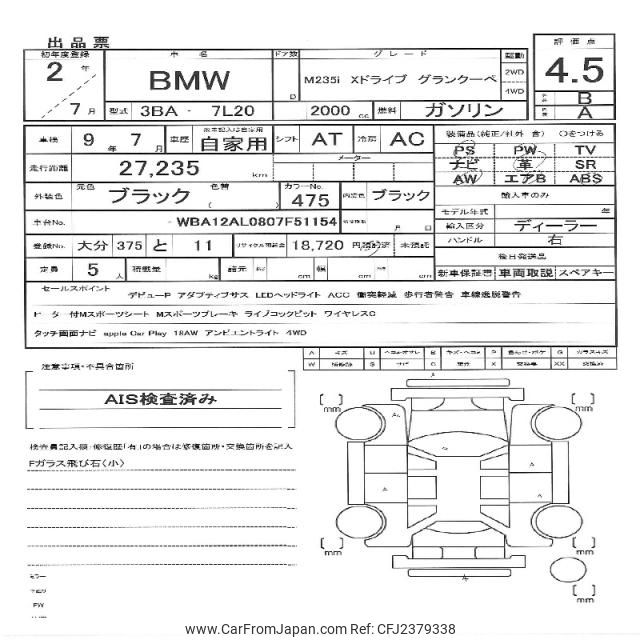 出品票
初年度登録 車名 ドア数 グレード 駆動 評価点
2年 BMW D M235i Xドライブ グランクーペ 2WD 4WD 4.5
7月 型式 3BA - 7L20 2000 cc 燃料 ガソリン B A
車検 9年 7月 車歴 自家用 シフト AT 冷房 AC 装備品(純正/社外 含) ○をつける
PS PW TV
走行距離 27,235 km メーター ナビ 革 SR
AW エアB ABS
外装色 元色 ブラック 色替 ( ) カラーNo. 475 内装色 ブラック 輸入車のみ
モデル年式 年
車台No. - WBA12AL0807F51154 月 日 輸入区分 ディーラー
登録No. 大分 375 と 11 リサイクル預託金 18,720 円 預託済 未預託 ハンドル 右
後日発送品
定員 5人 積載量 kg 諸元 cm 幅 cm cm 新車保証書 車両取説 スペアキー
セールスポイント
デビューP アダプティブサス LEDヘッドライト ACC 衝突軽減 歩行者警告 車線逸脱警告
ヒーター付Mスポーツシート Mスポーツブレーキ ライブコックピット ワイヤレスC
タッチ画面ナビ apple Car Play 18AW アンビエントライト 4WD
注意事項・不具合箇所
AIS検査済み
検査員記入欄・修復歴「有」の場合は修復箇所・交換箇所を記入
Fガラス飛び石〈小〉
PW
A キズ U B P G
W S C X XX
[ ] mm [ ] mm
[ ] mm [ ] mm
[ ] mm
www.CarFromJapan.com Ref: CFJ2379338